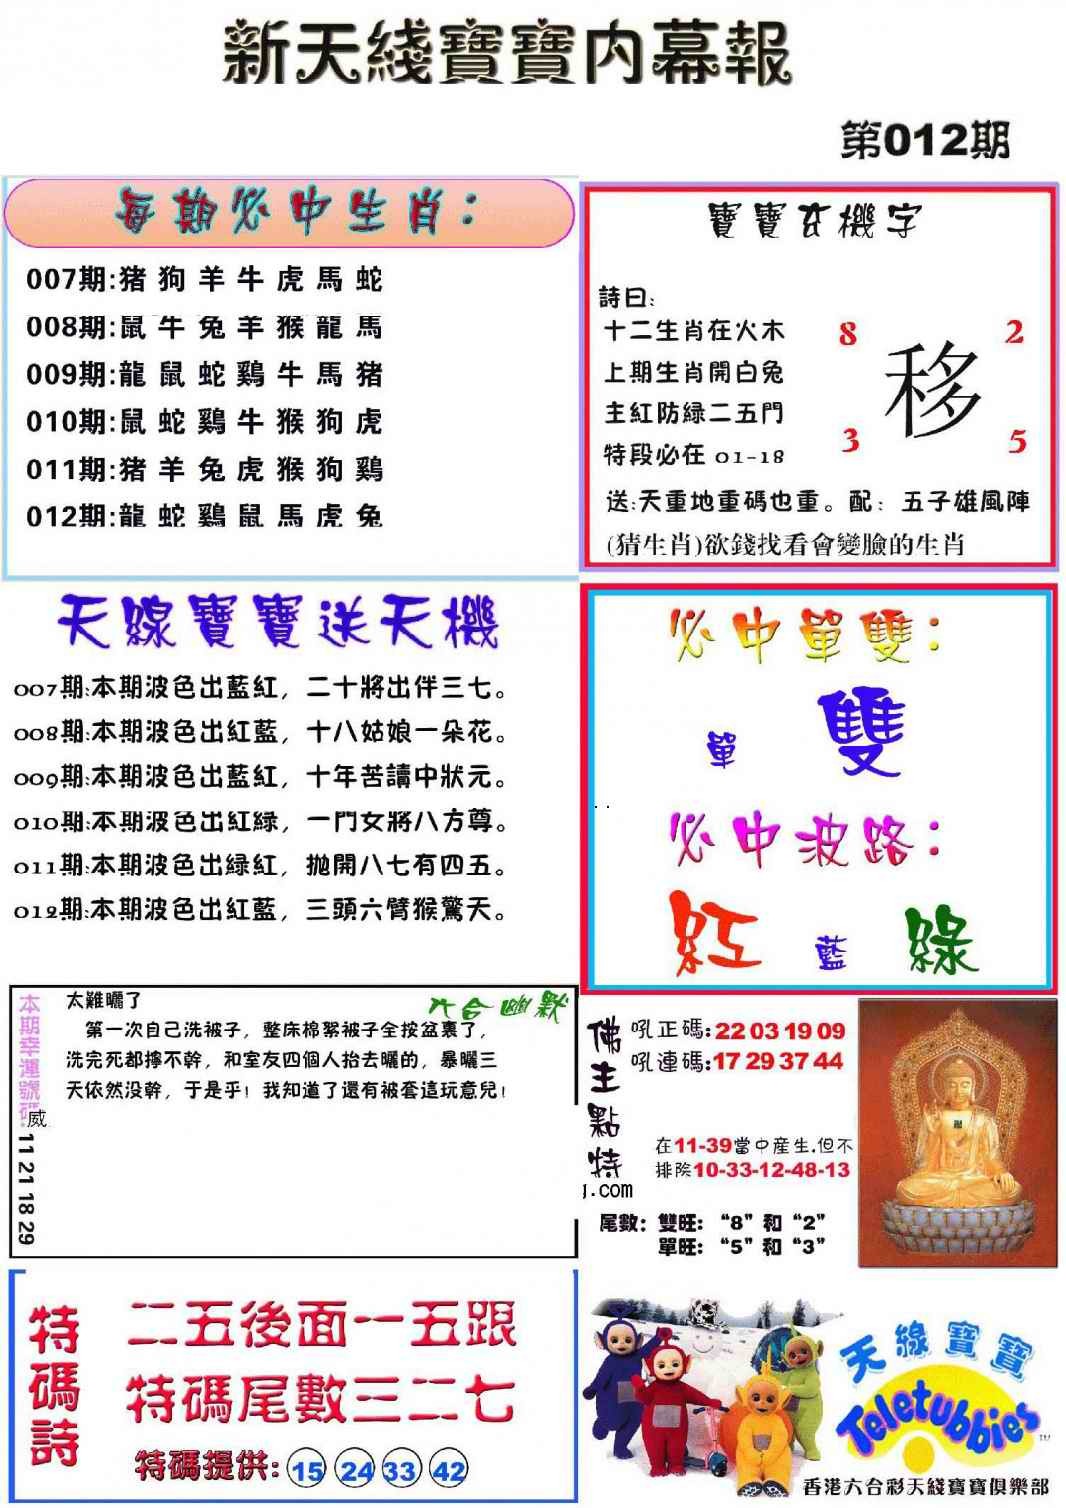 新天綫寶寶内幕報
第012期
每期必中生肖：
007期:猪狗羊牛虎馬蛇
008期:鼠牛兔羊猴龍馬
009期:龍鼠蛇鷄牛馬猪
010期:鼠蛇鷄牛猴狗虎
011期:猪羊兔虎猴狗鷄
012期:龍蛇鷄鼠馬虎兔
寶寶玄機字
詩曰:
十二生肖在火木
上期生肖開白兔
主紅防緑二五門
特段必在 01-18
8 2
移
3 5
送:天重地重碼也重。配：五子雄風陣
(猜生肖)欲錢找看會變臉的生肖
天線寶寶送天機
007期:本期波色出藍紅，二十將出伴三七。
008期:本期波色出紅藍，十八姑娘一朵花。
009期:本期波色出藍紅，十年苦讀中狀元。
010期:本期波色出紅緑，一門女將八方尊。
011期:本期波色出緑紅，拋開八七有四五。
012期:本期波色出紅藍，三頭六臂猴驚天。
必中單雙：
單 雙
必中波路：
紅 藍 綠
本期幸運號碼:
威
11 21 18 29
六合幽默
太難曬了
第一次自己洗被子，整床棉絮被子全按盆裏了，
洗完死都擰不幹，和室友四個人抬去曬的，暴曬三
天依然没幹，于是乎！我知道了還有被套這玩意兒！
佛主點特
吼正碼:22 03 19 09
吼連碼:17 29 37 44
在11-39當中産生.但不
排除10-33-12-48-13
.com
尾數：雙旺：“8”和“2”
單旺：“5”和“3”
特碼詩
二五後面一五跟
特碼尾數三二七
特碼提供: 15 24 33 42
天線寶寶
Teletubbies
TM
香港六合彩天綫寶寶俱樂部